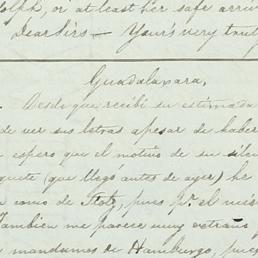 dolph, or at least her safe arriv
Dear Sirs — Your's very truly
Guadalaxara,
. Desde que recibi su estimada
de ver sus letras apesar de haber
espero que el motivo de su silen
quete (que llego antes de ayer) he
como de Stolz, pues pr. el mis
Tambien me parece muy extraño
mandamos de Hamburgo, pues